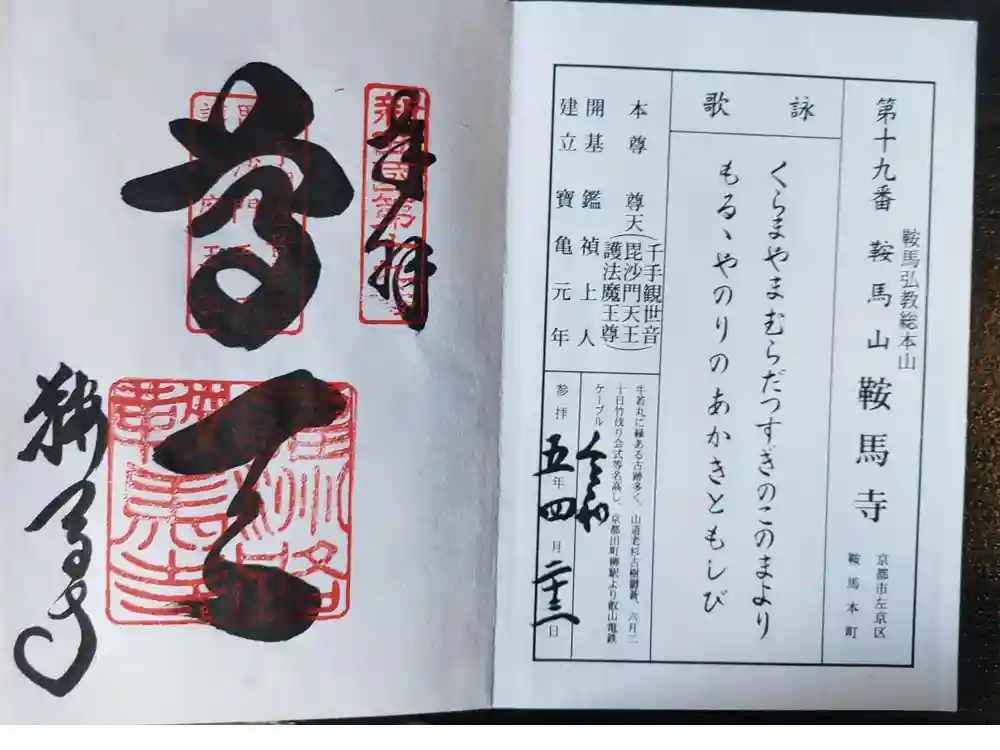 第十九番 鞍馬山 鞍馬寺
鞍馬弘教総本山
京都市左京区
鞍馬本町
詠歌
くらまやまむらだつすぎのこのまより
もるゝやのりのあかきともしび
本尊 尊天(千手観世音
毘沙門天王
護法魔王尊)
開基 鑑禎上人
建立 寶亀元年
牛若丸に縁ある古跡多く、山道老杉古樹鬱蒼、六月二
十日竹伐り会式等名高し、京都出町柳駅より叡山電鉄
ケーブル
参拝 令和五年四月二十三日
奉拝
尊天
鞍馬寺